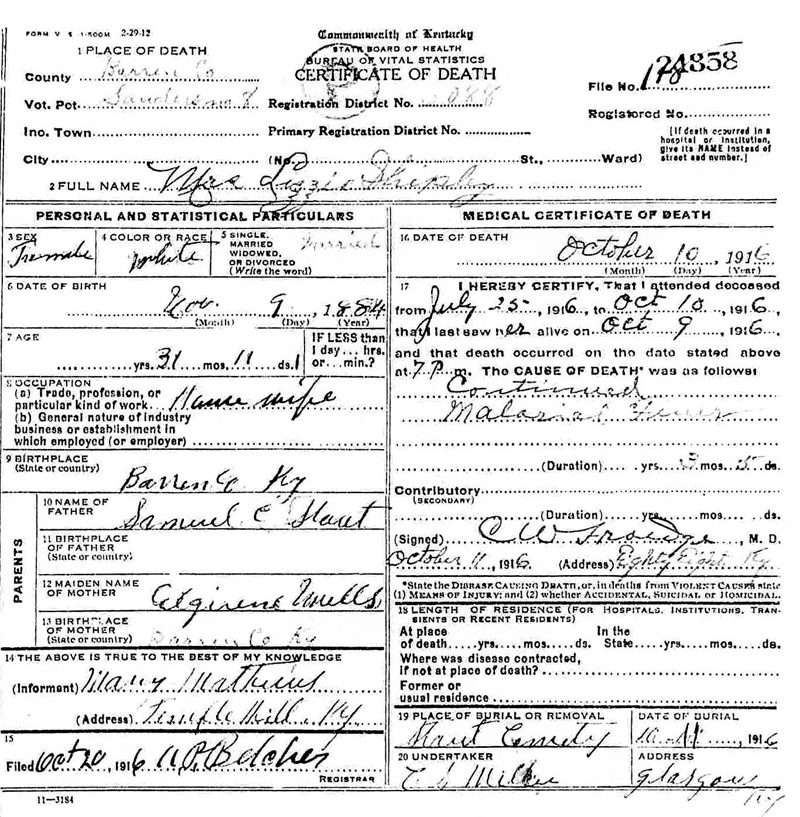 FORM V. S. 1-500M 2-29-12
Commonwealth of Kentucky
STATE BOARD OF HEALTH
BUREAU OF VITAL STATISTICS
CERTIFICATE OF DEATH
1 PLACE OF DEATH
County Barren Co
Vot. Pct.
Registration District No.
Inc. Town
Primary Registration District No.
City
(No. St., Ward)
24858
File No.
Registered No.
[If death occurred in a
hospital or institution,
give its NAME instead of
street and number.]
2 FULL NAME Mrs Lizzie Shipley
PERSONAL AND STATISTICAL PARTICULARS
3 SEX
Female
4 COLOR OR RACE
White
5 SINGLE,
MARRIED
WIDOWED,
OR DIVORCED
(Write the word)
Married
6 DATE OF BIRTH
Nov. 9, 1884
(Month) (Day) (Year)
7 AGE
yrs. 31 mos. 11 ds. 1
IF LESS than
1 day... hrs.
or... min.?
8 OCCUPATION
(a) Trade, profession, or
particular kind of work House wife
(b) General nature of industry
business or establishment in
which employed (or employer)
9 BIRTHPLACE
(State or country)
Barren Co Ky
PARENTS
10 NAME OF
FATHER
Samuel C
11 BIRTHPLACE
OF FATHER
(State or country)
12 MAIDEN NAME
OF MOTHER
13 BIRTHPLACE
OF MOTHER
(State or country)
Barren Co Ky
14 THE ABOVE IS TRUE TO THE BEST OF MY KNOWLEDGE
(Informant) Mary Mathews
(Address) Temple Hill, Ky
15
Filed Oct 20, 1916 Belcher
REGISTRAR
11—3184
MEDICAL CERTIFICATE OF DEATH
16 DATE OF DEATH
October 10, 1916
(Month) (Day) (Year)
17 I HEREBY CERTIFY, That I attended deceased
from July 25, 1916, to Oct 10, 1916,
that I last saw her alive on Oct 9, 1916
and that death occurred on the date stated above
at 7 P. m. The CAUSE OF DEATH* was as follows:
Continued
Malarial Fever
(Duration) yrs. 3 mos. ds.
Contributory
(SECONDARY)
(Duration) yrs. mos. ds.
(Signed) C W Froedge, M. D.
October 11, 1916 (Address) Eighty Eight Ky
*State the DISEASE CAUSING DEATH, or, in deaths from VIOLENT CAUSES state
(1) MEANS OF INJURY; and (2) whether ACCIDENTAL, SUICIDAL or HOMICIDAL.
18 LENGTH OF RESIDENCE (FOR HOSPITALS, INSTITUTIONS, TRAN-
SIENTS OR RECENT RESIDENTS)
At place In the
of death yrs. mos. ds. State yrs. mos. ds.
Where was disease contracted,
if not at place of death?
Former or
usual residence
19 PLACE OF BURIAL OR REMOVAL
DATE OF BURIAL
10 11, 1916
20 UNDERTAKER
ADDRESS
Glasgow
Ky